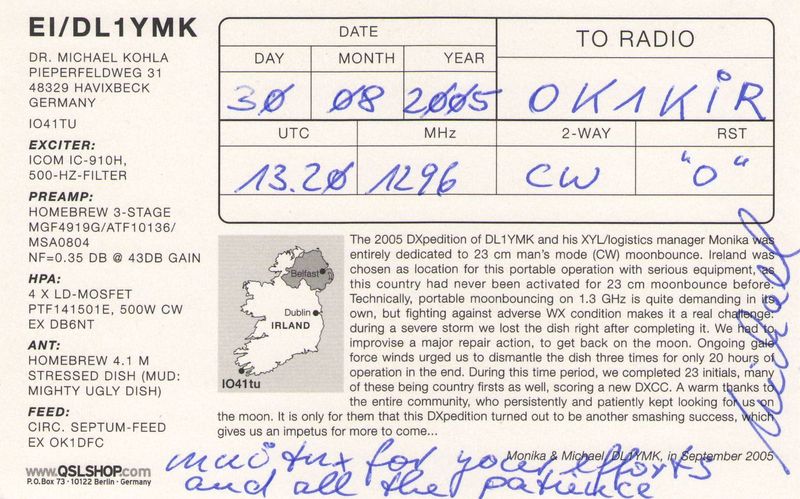 EI/DL1YMK
DR. MICHAEL KOHLA
PIEPERFELDWEG 31
48329 HAVIXBECK
GERMANY
IO41TU
EXCITER:
ICOM IC-910H,
500-HZ-FILTER
PREAMP:
HOMEBREW 3-STAGE
MGF4919G/ATF10136/
MSA0804
NF=0.35 DB @ 43DB GAIN
HPA:
4 X LD-MOSFET
PTF141501E, 500W CW
EX DB6NT
ANT:
HOMEBREW 4.1 M
STRESSED DISH (MUD:
MIGHTY UGLY DISH)
FEED:
CIRC. SEPTUM-FEED
EX OK1DFC
www.QSLSHOP.com
P.O.Box 73 · 10122 Berlin · Germany
DATE
TO RADIO
DAY MONTH YEAR
30 08 2005 OK1KIR
UTC MHz 2-WAY RST
13.20 1296 CW "O"
Belfast
Dublin
IRLAND
IO41tu
The 2005 DXpedition of DL1YMK and his XYL/logistics manager Monika was
entirely dedicated to 23 cm man's mode (CW) moonbounce. Ireland was
chosen as location for this portable operation with serious equipment, as
this country had never been activated for 23 cm moonbounce before.
Technically, portable moonbouncing on 1.3 GHz is quite demanding in its
own, but fighting against adverse WX condition makes it a real challenge:
during a severe storm we lost the dish right after completing it. We had to
improvise a major repair action, to get back on the moon. Ongoing gale
force winds urged us to dismantle the dish three times for only 20 hours of
operation in the end. During this time period, we completed 23 initials, many
of these being country firsts as well, scoring a new DXCC. A warm thanks to
the entire community, who persistently and patiently kept looking for us on
the moon. It is only for them that this DXpedition turned out to be another smashing success, which
gives us an impetus for more to come...
Monika & Michael, DL1YMK, in September 2005
Michael
tnx for your efforts
and all the patience